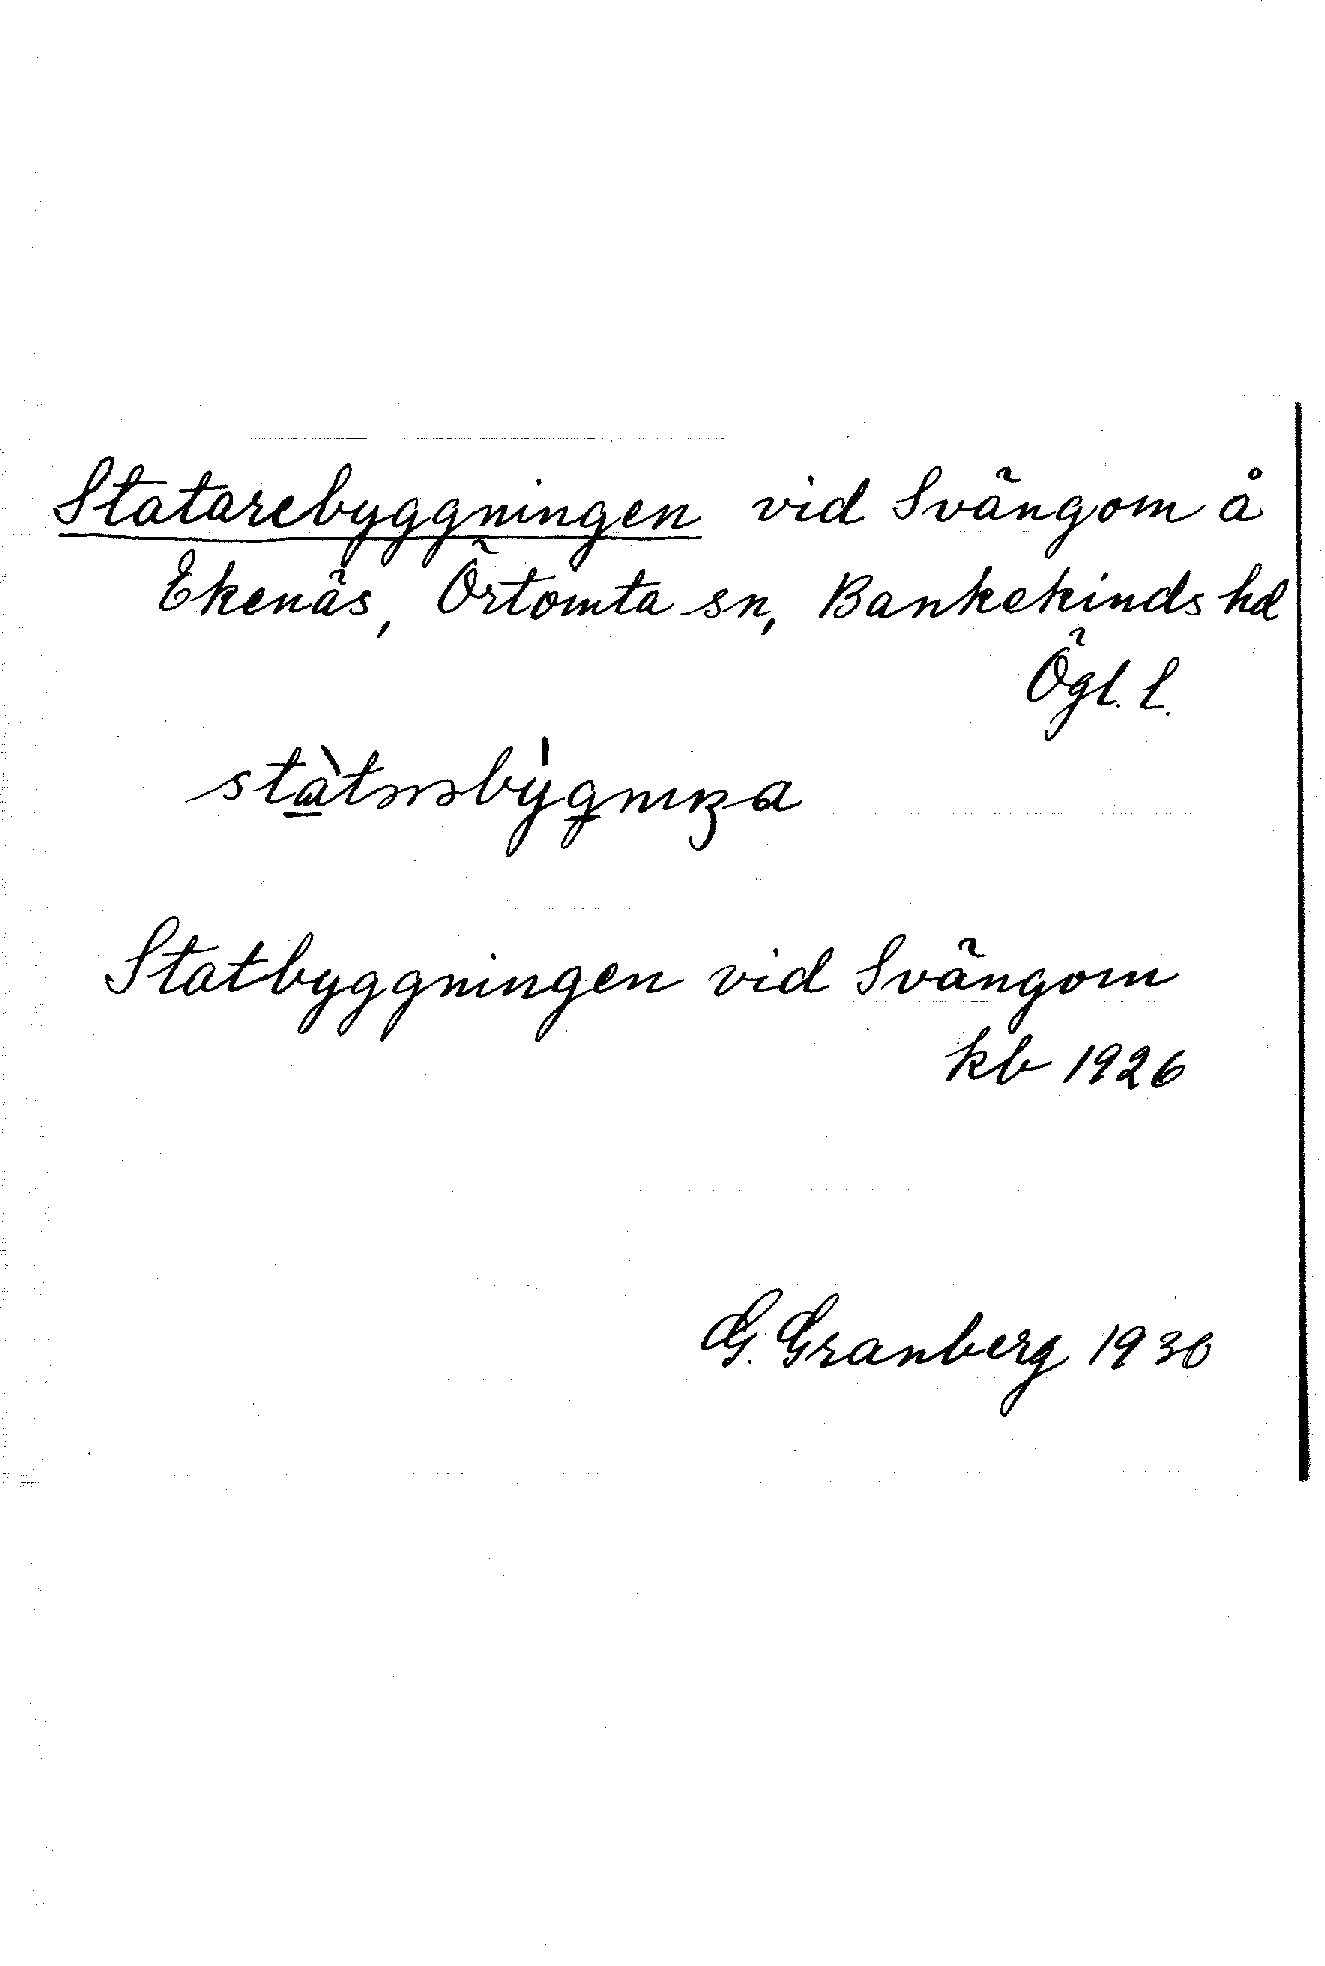 Statarebyggningen vid Svängom å
Ekenäs, Örtomta sn, Bankekinds hd
Ögl. l.
Statbyggningen vid Svängom
kb 1926
G. Granberg 1930